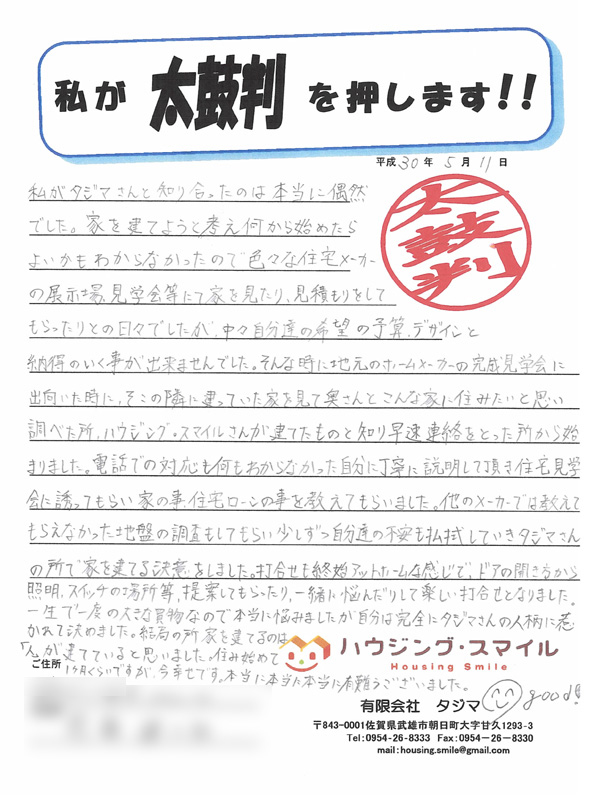 私が 太鼓判 を押します!!
平成 30 年 5 月 11 日
太鼓判
私がタジマさんと知り合ったのは本当に偶然
でした。家を建てようと考え何から始めたら
よいかもわからなかったので色々な住宅メーカー
の展示場、見学会等にて家を見たり、見積もりをして
もらったりとの日々でしたが、中々自分達の希望の予算、デザインと
納得のいく事が出来ませんでした。そんな時に地元のホームメーカーの完成見学会に
出向いた時に、そこの隣に建っていた家を見て奥さんとこんな家に住みたいと思い
調べた所、ハウジング・スマイルさんが建てたものと知り早速連絡をとった所から始
まりました。電話での対応も何もわからなかった自分に丁寧に説明して頂き住宅見学
会に誘ってもらい家の事、住宅ローンの事を教えてもらいました。他のメーカーでは教えて
もらえなかった地盤の調査もしてもらい少しずつ自分達の不安も払拭していきタジマさん
の所で家を建てる決意をしました。打合せも終始アットホームな感じで、ドアの開き方から
照明、スイッチの場所等、提案してもらったり、一緒に悩んだりして楽しい打合せとなりました。
一生で一度の大きな買物なので本当に悩みましたが自分は完全にタジマさんの人柄に惹
かれて決めました。結局の所家を建てるのは
「人」が建てていると思いました。住み始めて
ご住所
1ヶ月くらいですが、今幸せです。本当に本当に本当に有難うございました。
good!!
ハウジング・スマイル
Housing Smile
有限会社 タジマ
〒843-0001佐賀県武雄市朝日町大字甘久1293-3
Tel:0954-26-8333 Fax:0954-26-8330
mail:housing.smile@gmail.com